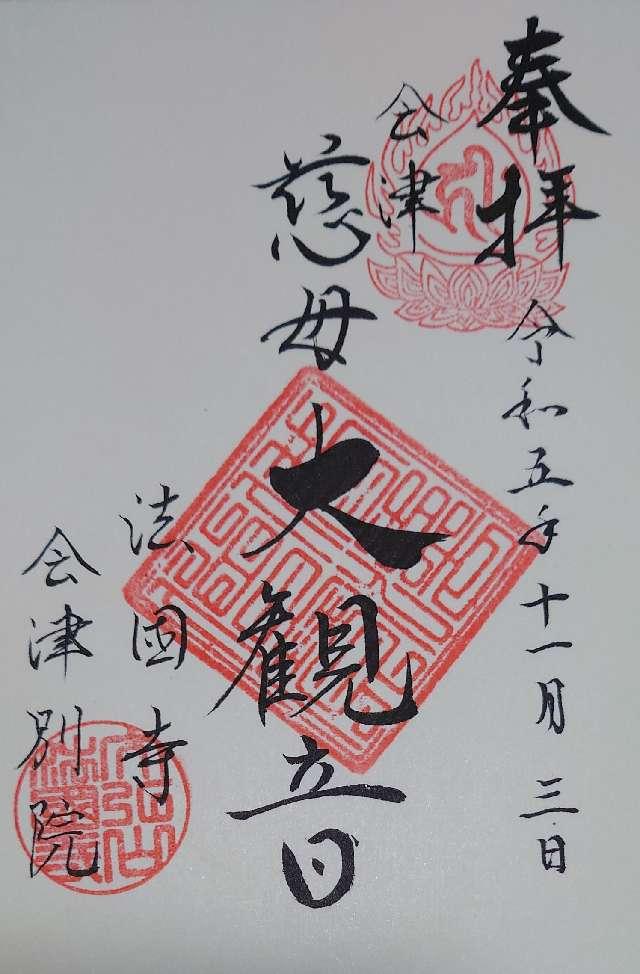 奉拝
令和五年十一月三日
会津
慈母大観音
法國寺
会津別院